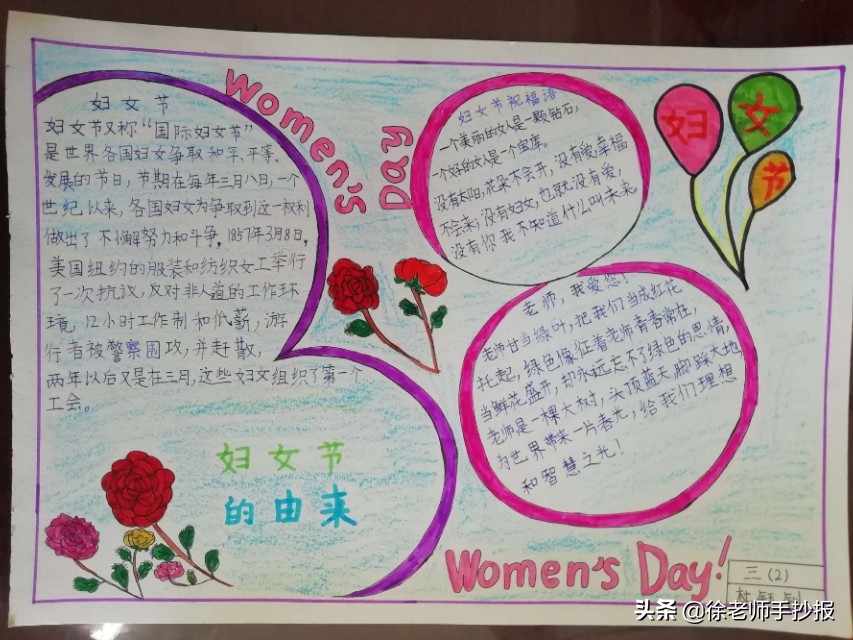 妇女节
妇女节又称“国际妇女节”
是世界各国妇女争取和平、平等、
发展的节日，节期在每年三月八日，一个
世纪以来，各国妇女为争取到这一权利
做出了不懈努力和斗争，1857年3月8日，
美国纽约的服装和纺织女工举行
了一次抗议，反对非人道的工作环
境，12小时工作制和低薪，游
行者被警察围攻，并赶散，
两年以后又是在三月，这些妇女组织了第一个
工会。
妇女节
的由来
Women's
Day
妇女节祝福语
一个美丽的女人是一颗钻石，
一个好的女人是一个宝库。
没有太阳，花朵不会开，没有爱幸福
不会来，没有妇女，也就没有爱，
没有你我不知道什么叫未来。
妇
女
节
老师，我爱您！
老师甘当绿叶，把我们当成红花
托起，绿色像征着老师青春常在，
当鲜花盛开，却永远忘不了绿色的恩情，
老师是一棵大树，头顶蓝天脚踩大地
为世界带来一片春光，给我们理想
和智慧之光！
Women's Day!
三（2）
头条 @徐老师手抄报